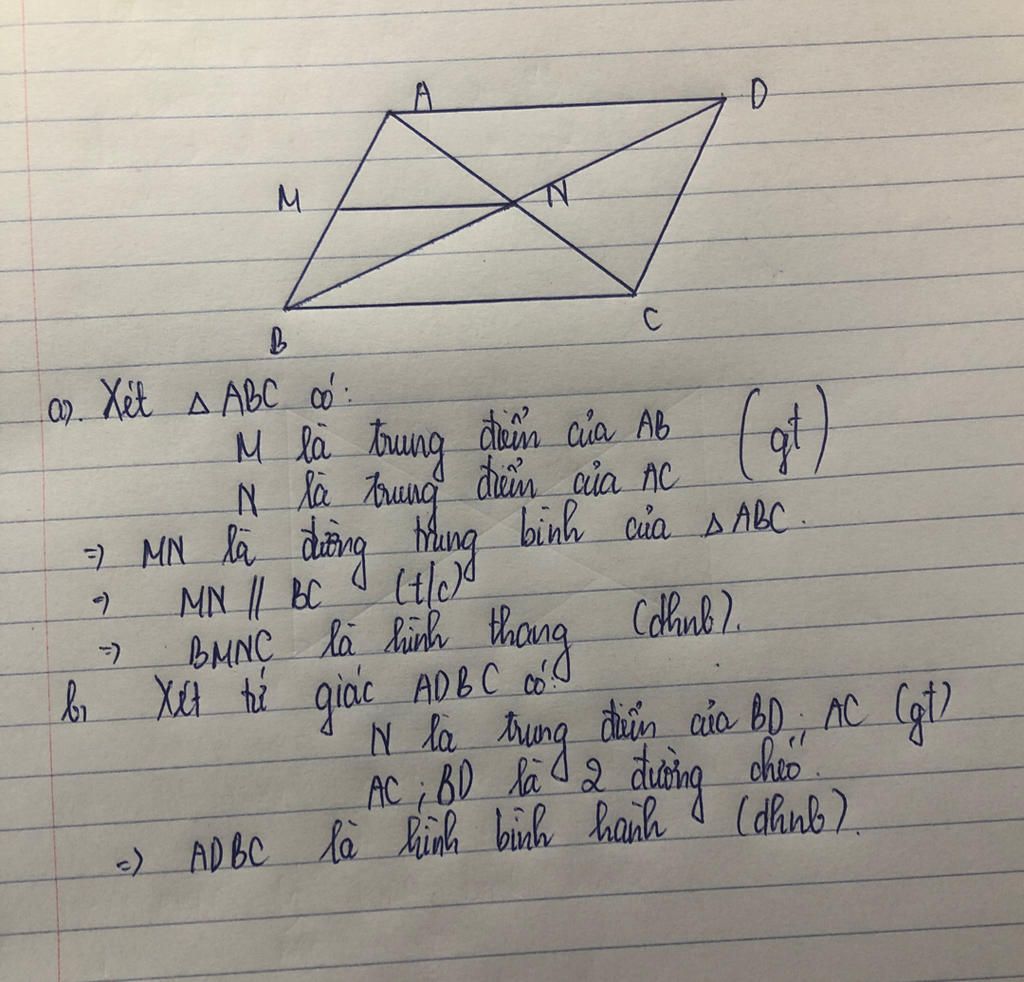 A
D
M
N
B
C
a). Xét △ ABC có:
M là trung điểm của AB (gt)
N là trung điểm của AC
=> MN là đường trung bình của △ ABC.
=> MN // BC (t/c)
=> BMNC là hình thang (dhnb).
b, Xét tứ giác ADBC có:
N là trung điểm của BD; AC (gt)
AC; BD là 2 đường chéo.
=> ADBC là hình bình hành (dhnb).